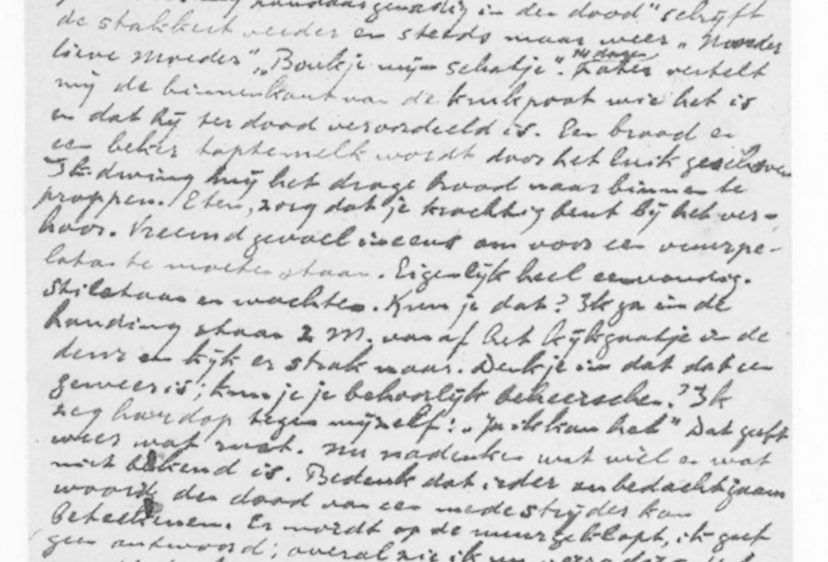 in den dood," schrijft
de stakkert verder en steeds maar weer „Moeder
lieve moeder", „Boukje mijn schatje". 14 dagen Later vertelt
mij de binnenkant van de krukpoot wie het is
en dat hij ter dood veroordeeld is. Een brood en
een beker taptemelk wordt door het luik geschoven
Ik dwing mij het droge brood naar binnen te
proppen. Eten, zorg dat je krachtig bent bij het ver-
hoor. Vreemd gevoel ineens om voor een vuurpe-
loton te moeten staan. Eigenlijk heel eenvoudig.
stilstaan en wachten. Kun je dat? Ik ga in de
houding staan 2 M. vanaf het kijkgaatje in de
deur en kijk er strak naar. Denk je in dat dat een
geweer is; kun je je behoorlijk beheerschen? Ik
zeg hardop tegen mijzelf: „Ja ik kan het" Dat geeft
weer wat rust. Nu nadenken wat wel en wat
niet bekend is. Bedenk dat ieder onbedachtzaam
woord den dood van een medestrijder kan
beteekenen. Er wordt op de muur geklopt, ik geef
geen antwoord; overal zie ik nu